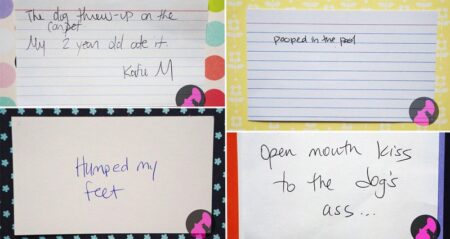 The dog threw-up on the
carpet
My 2 year old ate it
Katie M
pooped in the pool
Humped my
feet
Open mouth kiss
to the dog's
ass...